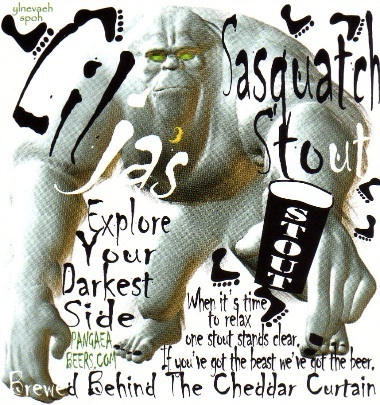 ylnevaeh
spoh
Sasquatch
Stout
jas
stout
Explore
Your
Darkest
Side
PANGAEA
BEERS.COM
When it's time
to relax
one stout stands clear.
If you've got the beast we've got the beer.
Brewed Behind The Cheddar Curtain